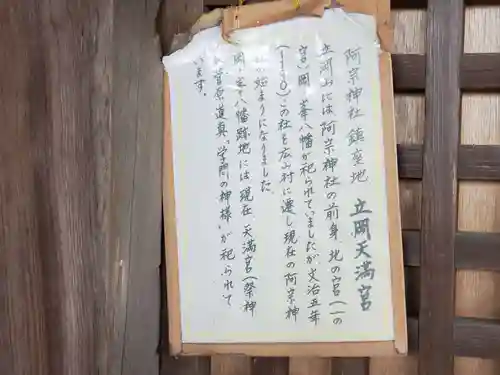 阿宗神社鎮座地 立岡天満宮
立岡山には阿宗神社の前身、北の宮(一の
宮)岡ノ峯八幡が祀られていましたが文治五年
(1190)この社を広山村に遷し現在の阿宗神
始まりになりました。
岡ノ峯八幡跡地には現在、天満宮(祭神
菅原道真、"学問の神様")が祀られて
います。